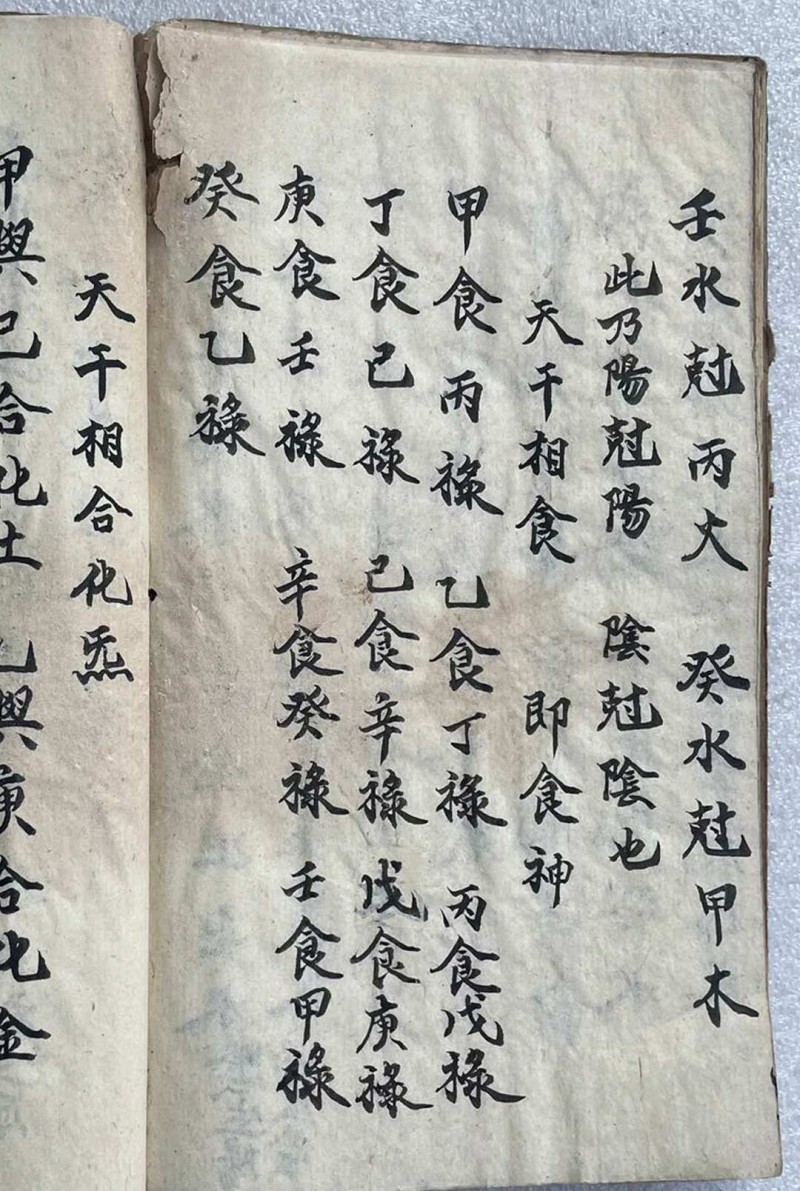 壬水尅丙火　癸水尅甲木
此乃陽尅陽　陰尅陰也
天干相食　即食神
甲食丙祿　乙食丁祿　丙食戊祿
丁食己祿　己食辛祿　戊食庚祿
庚食壬祿　辛食癸祿　壬食甲祿
癸食乙祿
天干相合化炁
甲與己合化土　乙與庚合化金